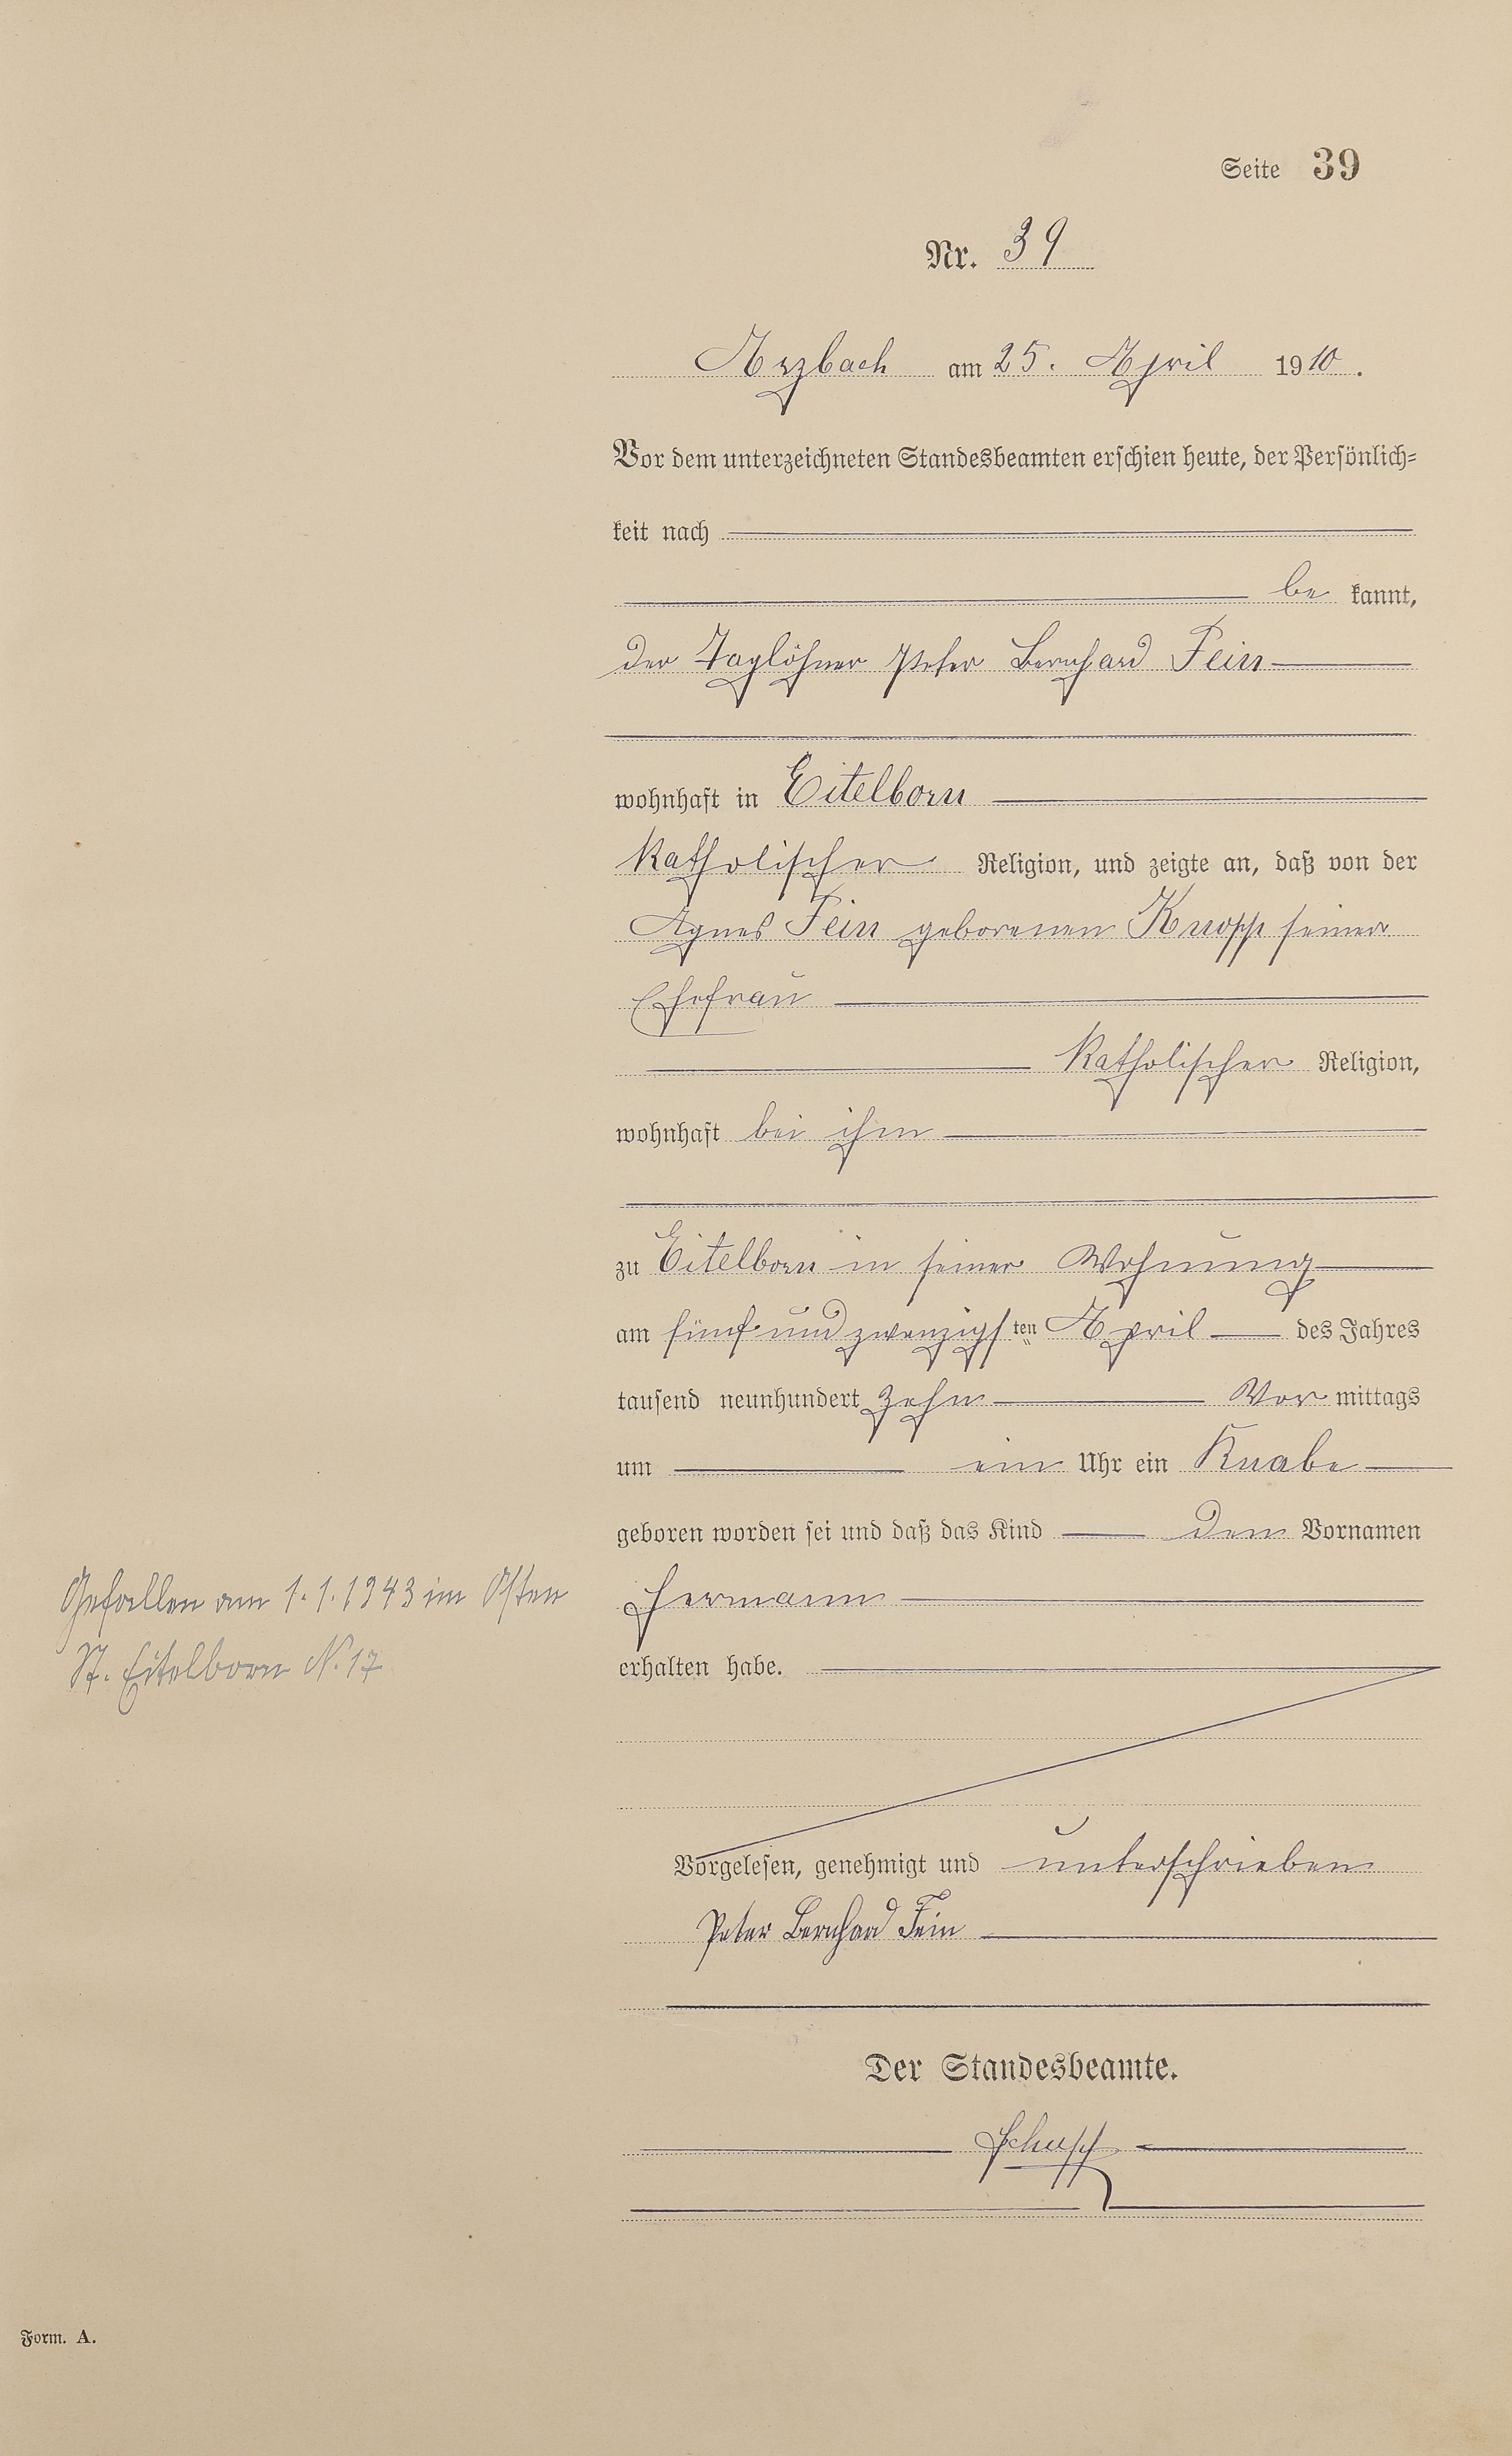 Seite 39
Nr. 39
Arzbach am 25. April 1910.
Vor dem unterzeichneten Standesbeamten erschien heute, der Persönlich-
keit nach
be kannt,
der Taglöhner Peter Bernhard Fein
wohnhaft in Eitelborn
katholischer Religion, und zeigte an, daß von der
Agnes Fein geborenen Knopp seiner
Ehefrau
katholischer Religion,
wohnhaft bei ihm
zu Eitelborn in seiner Wohnung
am fünf und zwanzigsten April des Jahres
tausend neunhundert zehn Vor mittags
um ein Uhr ein Knabe
geboren worden sei und daß das Kind den Vornamen
Gefallen am 1.1.1943 im Osten
St. Eitelborn N. 17
Hermann
erhalten habe.
Vorgelesen, genehmigt und unterschrieben
Peter Bernhard Fein
Der Standesbeamte.
Form. A.